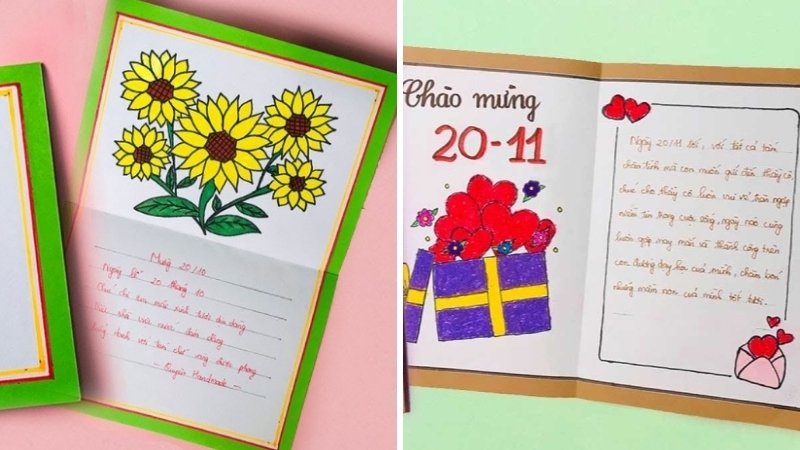 Mừng 20/10
Ngày lễ 20 tháng 10
Chúc chị em mãi xinh tươi dịu dàng
Việc nhà việc nước đảm đang
danh với tám chữ vàng
- Quyên Handmade -
Chào mừng
20-11
Ngày 20/11 tới, với tất cả tấm
chân tình mà con muốn gửi đến thầy cô,
chúc cho thầy cô luôn vui vẻ, tràn ngập
niềm tin trong cuộc sống, ngày nào cũng
luôn gặp may mắn và thành công trên
con đường dạy học của mình, chăm bón
những mầm non của mình tốt tươi.